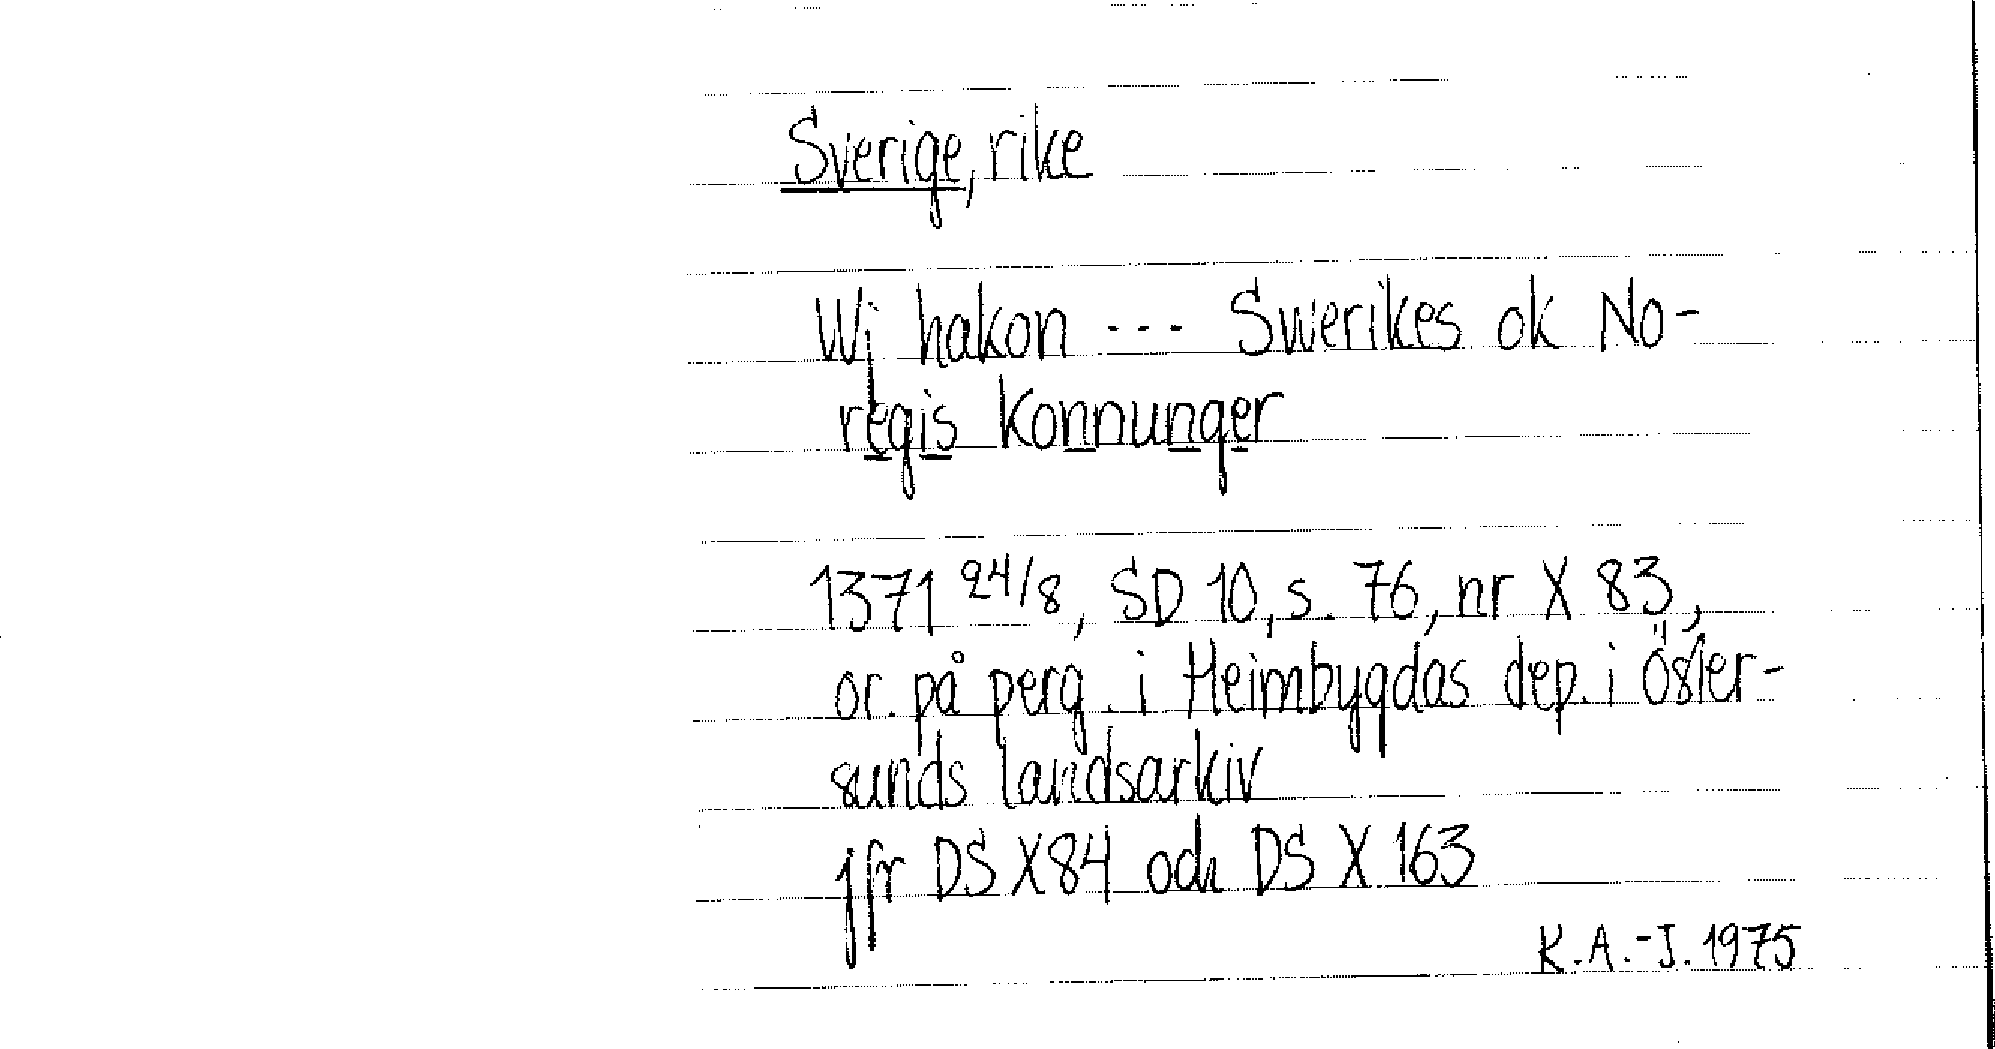 Sverige, rike
Wj hakon --- Swerikes ok No-
regis Konnunger
1371 24/8, SD 10, s. 76, nr X 83,
or. på perg. i Heimbygdas dep. i Öster-
sunds landsarkiv
jfr DS X 84 och DS X 163
K.A.-J. 1975